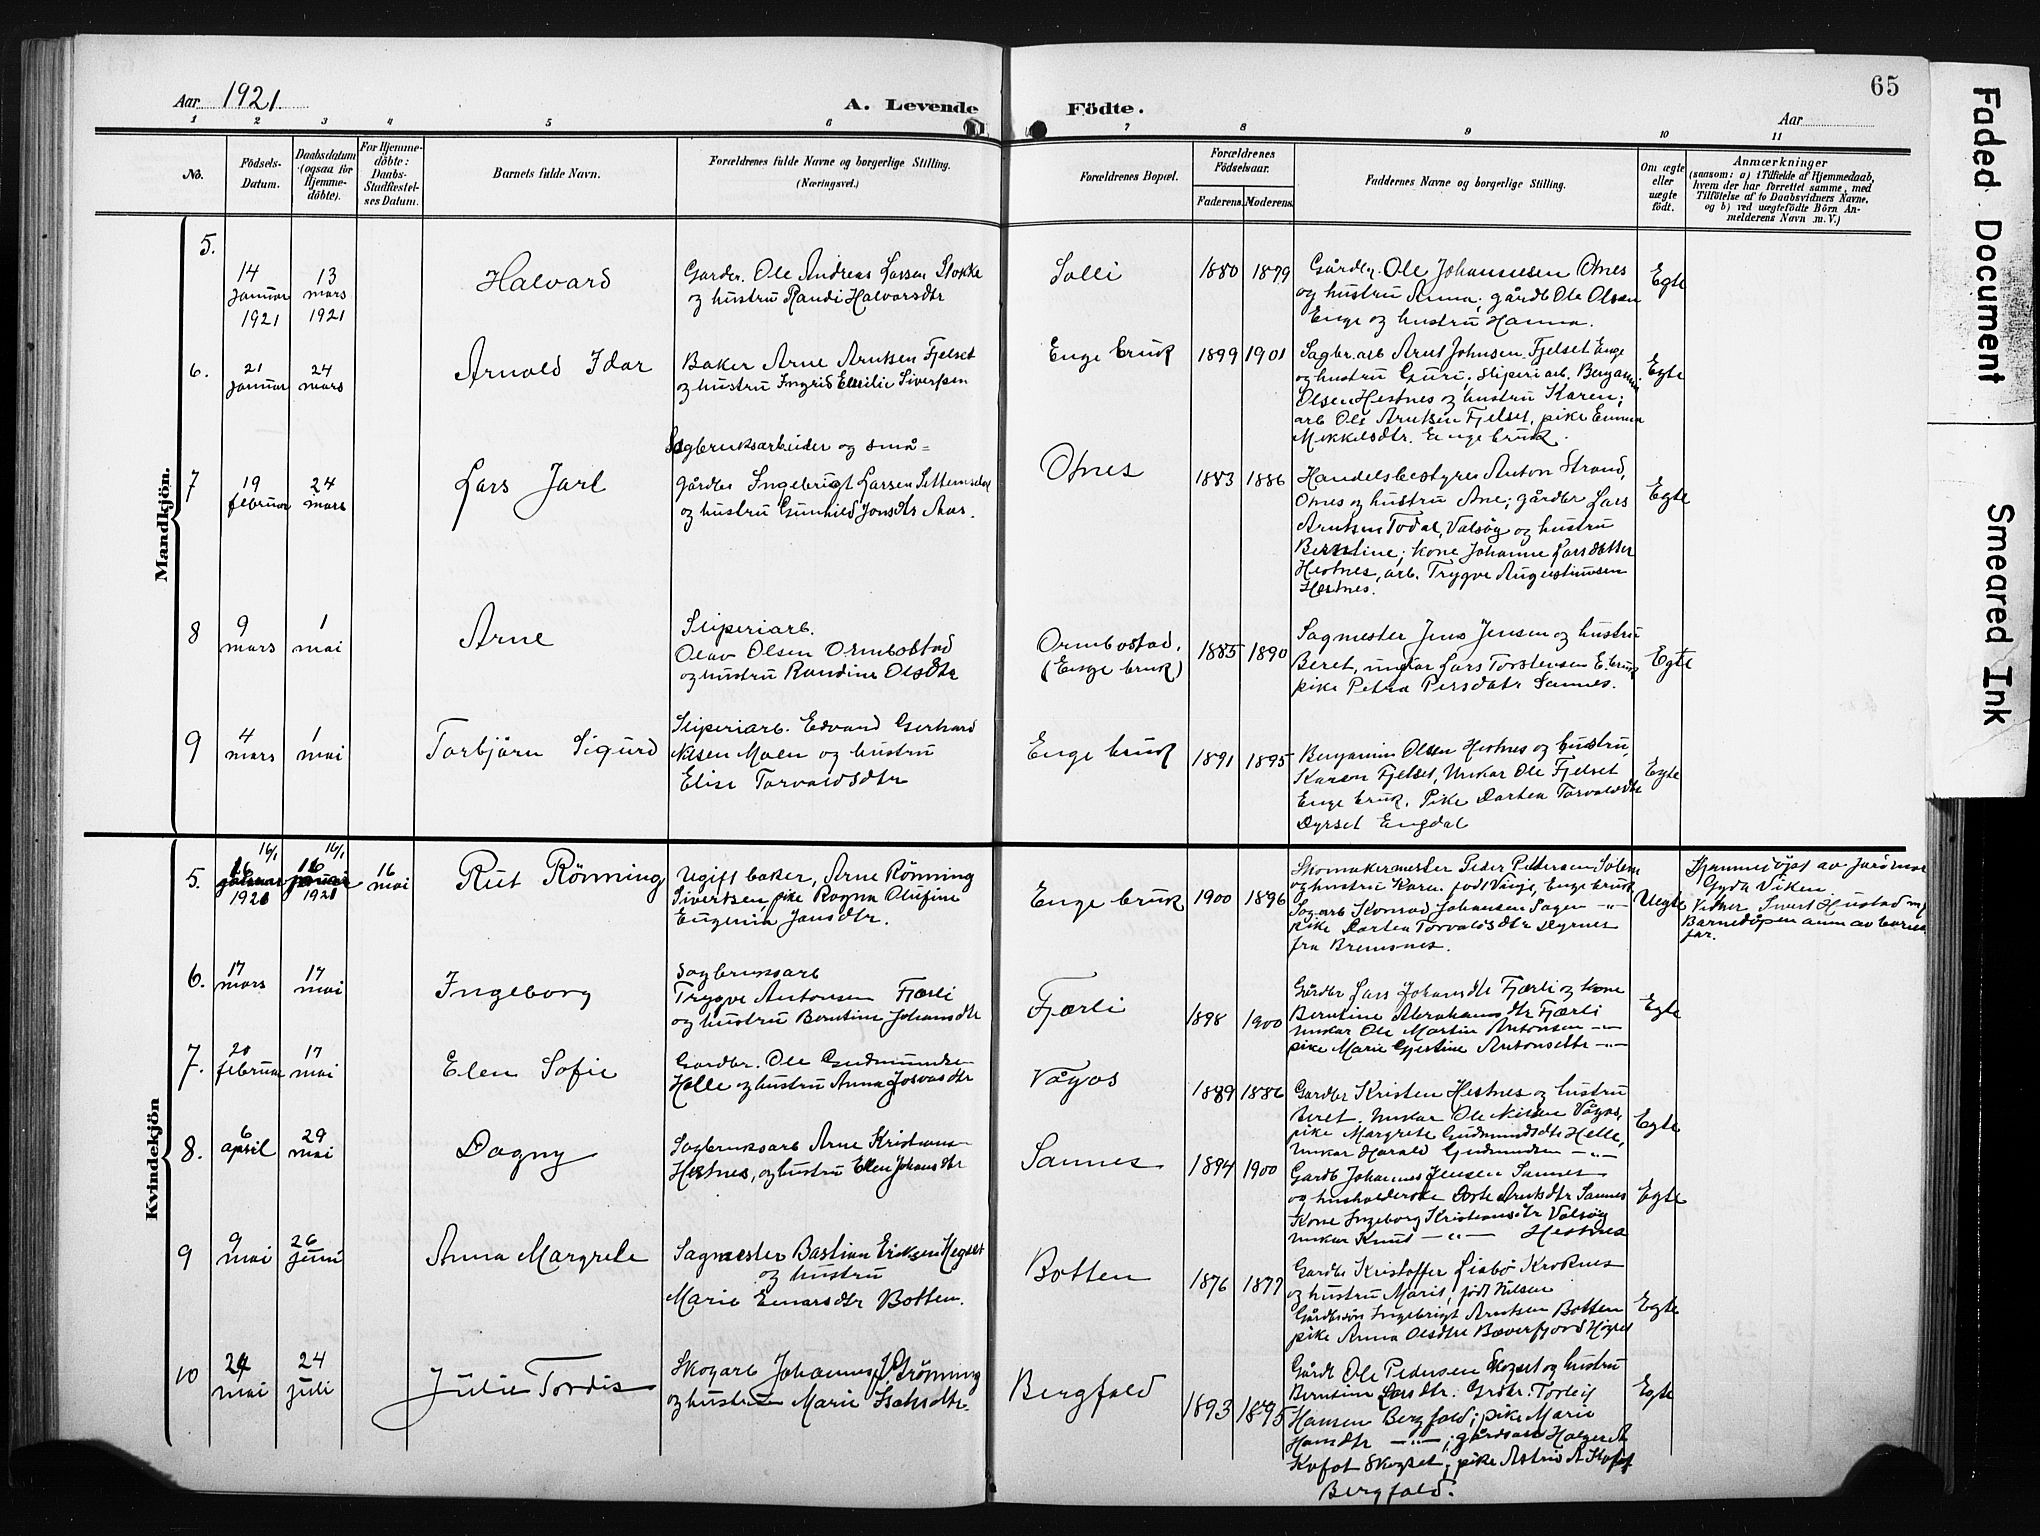 65
Aar 1921.
A. Levende Födte.
Aar
1 2 3 4 5 6 7 8 9 10 11
No.
Födsels-Datum.
Daabsdatum (ogsaa for Hjemmedöbte).
For Hjemmedöbte: Daabs-Stadfæstelses Datum.
Barnets fulde Navn.
Forældrenes fulde Navne og borgerlige Stilling.
(Næringsvei.)
Forældrenes Bopæl.
Forældrenes Födselsaar.
Faderens. Moderens.
Faddernes Navne og borgerlige Stilling.
Om ægte eller uægte födt.
Anmærkninger
(saasom: a) i Tilfælde af Hjemmedaab, hvem der har forrettet samme, med Tilföielse af to Daabsvidners Navne, og b) ved uægtefödte Börn Anmelderens Navn m. V.)
Mandkjön.
5.
14 januar 1921
13 mars 1921
Halvard
Gardbr. Ole Andreas Larsen Stokke
og hustru Randi Halvorsdtr
Solli
1880 1879
Gårdbr. Ole Johannesen Otnes
og hustru Anna; gårdb Ole Olsen
Enge og hustru Hanna.
Egte
6.
21 januar
24 mars
Arnold Idar
Baker Arne Arntsen Fjelset
og hustru Ingrid Emilie Sivertsen
Enge bruk
1899 1901
Sagbr.arb Arnt Johnsen Fjelset Enge
og hustru Guri; Sliperiarb. Benjamin
Olsen Hestnes og hustru Karen;
arb Ole Arntsen Fjelset, pike Emma
Mikkelsdtr. Enge bruk.
Egte
7
19 februar
24 mars
Lars Jarl
Sagbruksarbeider og små-
gårdbr Ingebrigt Larsen Settemsdal
og hustru Gunhild Jonsdtr Aar.
Otnes
1883 1886
Handelsbestyrer Anton Strand,
Otnes og hustru Ane; gårdbr Lars
Arntsen Todal, Valsøy og hustru
Berntine; kone Johanne Larsdatter
Hestnes, arb. Trygve Augustinusen
Hestnes.
Egte
8
9 mars
1 mai
Arne
Sliperiarb.
Olav Olsen Ormbostad
og hustru Randine Olsdtr
Ormbostad.
(Enge bruk)
1885 1890
Sagmester Jens Jensen og hustru
Beret, ungkar Lars Torstensen E. bruk
pike Petra Persdatr Sannes.
Egte
9
4 mars
1 mai
Torbjørn Sigurd
Sliperiarb. Edvard Gerhard
Nilsen Moen og hustru
Elise Torvaldsdtr
Enge bruk
1891 1895
Benjamin Olsen Hestnes og hustru
Karen Fjelset, Unkar Ole Fjelset
Enge bruk. Pike Dortea Torvaldsdtr
Dyrset Engdal
Egte
Kvindekjön
5.
16/1 1920
16/1 1921
16 mai
Rut Rönning
Ugift baker, Arne Rönning
Sivertsen, pike Ragna Olufine
Eugenia Jansdtr.
Enge bruk
1900 1896
Skomakermester Peder Pedersen Solem
og hustru Karen født Vinje, Enge bruk
Sagarb Konrad Johansen Sagen -"-
pike Dortea Torvaldsdtr Dyrnes
fra Bremsnes.
Uegte
Hjemmedöpt av jordmor
Gyda Viken
Vidner Sivert Hustad og
Barnedåpen anm av barnets
far.
6.
17 mars
17 mai
Ingeborg
Sagbruksarb
Trygve Antonsen Fjærli
og hustru Berntine Johansdtr
Fjærli
1898 1900
Gårdbr Lars Johansdtr Fjærli og kone
Berntine Abrahamsdtr Fjærli
Unkar Ole Martin Antonsen -"-
pike Marie Gjertine Antonsdtr -"-
Egte
7.
20 februar
17 mai
Elen Sofie
Gardbr. Ole Gudmundsen
Helle og hustru Anna Josvasdtr
Vågos
1889 1886
Gardbr Kristen Hestnes og hustru
Beret, Unkar Ole Nilsen Vågos,
pike Margrete Gudmundsdtr Helle,
unkar Harald Gudmundsen -"-
Egte
8.
6 april
29 mai
Dagny
Sagbruksarb Arne Kristians
Hestnes, og hustru Ellen Johansdtr
Sannes
1894 1900
Gardb Johannes Jensen Sannes
og husholderske Dorte Arntsdtr Sannes
Kone Ingeborg Kristiansdtr Valsøy
unkar Knut -"- Hestnes
Egte
9
9 mai
26 juni
Anna Margrete
Sagmester Bastian Eriksen Hegset
og hustru
Marie Einarsdtr Botten.
Botten
1876 1877
Gardbr Kristoffer Liabø Kroknes
og hustru Marit, født Nilsen
Gårdbrsøn Ingebrigt Arntsen Botten
pike Anna Olsdtr Bæverfjord Höjset
Egte
10
24 mai
24 juli
Julie Tordis
Skogarb Johannes J. Grönning
og hustru Marie Isaksdtr.
Bergfald
1893 1895
Gårdb Ole Pedersen Skogset og hustru
Berntine Larsdtr. Grdbr. Torleif
Hansen Bergfald; pike Marie
Hansdtr -"-; gårdsarb Holger A
Kofot Skogset, pike Astrid A Kofot
Bergfald.
Egte
Faded Document
Smeared Ink